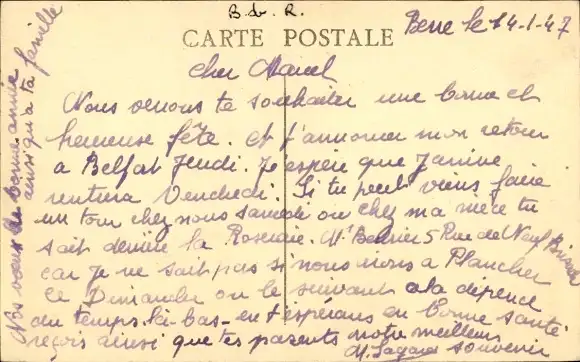 B. dr. R.
CARTE POSTALE
Berne le 14-1-47
Cher Marcel
Nous venons te souhaiter une bonne et
heureuse fête. et t'annoncer mon retour
a Belfort Jeudi. J'espère que Janine
rentrera Vendredi. Si tu peut viens faire
un tour chez nous samedi ou chez ma mère tu
sait derrière la Roseraie. 5 Rue de Neuf
car je ne sait pas si nous irons a Plancher
ce Dimanche ou le suivant a la dépend
du temps là-bas- en t'espérans en bonne santé
reçois ainsi que tes parents notre meilleur
souvenir
Nos voeux de bonne année
ainsi qu'à ta famille